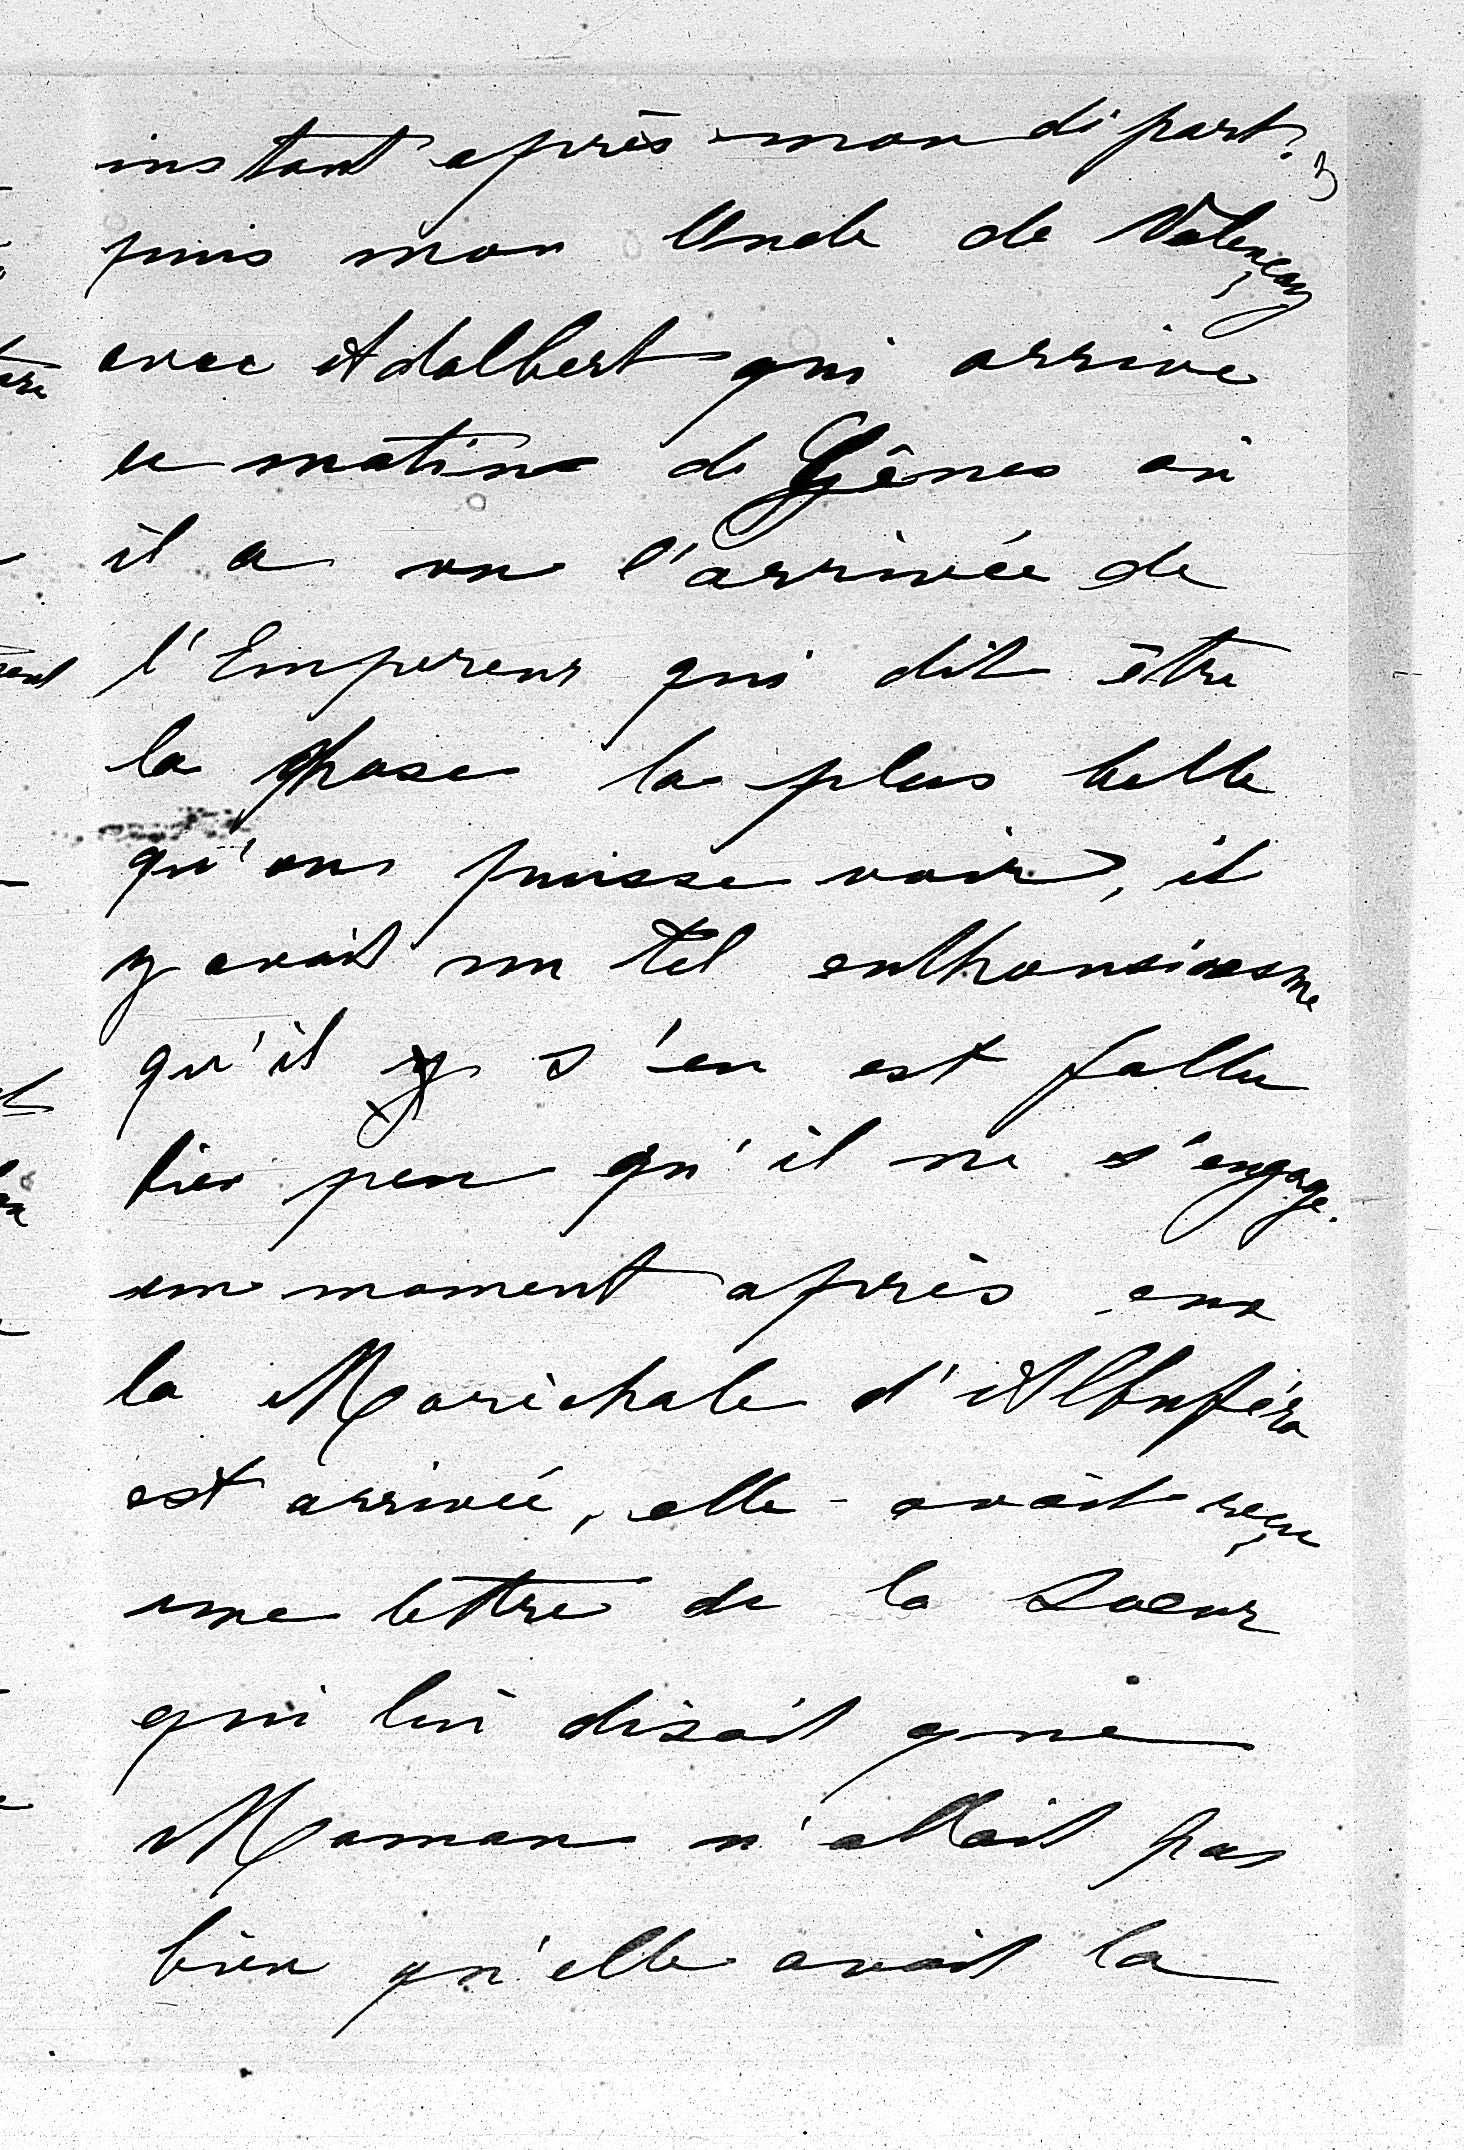 instant après mon départ.
3
puis mon Oncle de Valençay
avec Adalbert qui arrive
ce matin de Gênes où
il a vu l'arrivée de
l'Empereur qui dit être
la chose la plus belle
qu'on puisse voir, il
y avait un tel enthousiasme
qu'il y s'en est fallu
bien peu qu'il ne s'engage.
un moment après eux
la Maréchale d'Albuféra
est arrivée, elle avait reçu
une lettre de la Soeur
qui lui disait que
Maman n'allait pas
bien qu'elle avait la